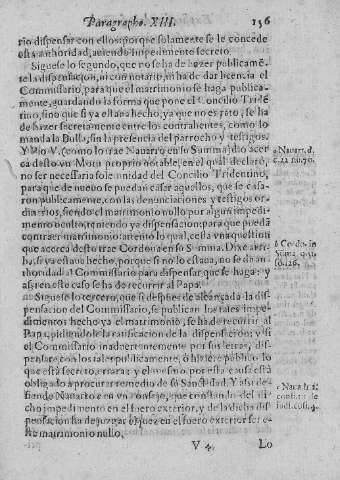 Paragrapho. XIII. 156
rio dispensar con ellos: porque solamente se le concede
esta authoridad, auiendo impedimento secreto.
Siguese lo segundo, que no se ha de hazer publicamē
te la dispensacion, ni con notario, ni ha de dar licencia el
Commissario, para que el matrimonio se haga publica-
mente, guardando la forma que pone el Concilio Tridē
tino, sino que si ya estaua hecho, ya que no es rato, se ha
de hazer secretamente entre los contrahentes, como lo
manda la Bulla, sin la presencia del parrocho y testigos.
Y Pio V. (como lo trae Nauarro en su Summa) dio acer
ca desto vn Motu proprio notable, en el qual declarò,
no ser necessaria solenidad del Concilio Tridentino,
para que de nueuo se puedan casar aquellos, que se casa-
ron publicamente, con las denunciaciones y testigos or-
dinarios, siendo el matrimonio nullo por algun impedi-
mento oculto, teniendo ya dispensacion: para que pueda
contraer matrimonio: acerca lo qual, es vna question
que acerca desto trae Cordoua en su Summa. Dixe arri-
ba, si ya estaua hecho, porque si no lo estaua, no se da au-
thoridad al Commissario para dispensar que se haga: y
assi en este caso se ha de recurrir al Papa.
Siguese lo tercero, que si despues de alcançada la dis-
pensacion del Commissario, se publican los tales impe-
dimentos hecho ya el matrimonio, se ha de recurrir al
Papa, pidiendole la ratificacion de la dispension: y si
el Commissario inaduertentemente por sus letras, dispen-
sare, con los tales publicamente, ò hiziere publico lo
que està secreto, errara: y el mesmo por esta causa està
obligado a procurar remedio de su Sanctidad. Y assi de-
fiende Nauarro en vn consejo, que constando del di-
cho impedimento en el fuero exterior, y de la dicha dis
pensacion ha de juzgar el juez en el fuero exterior ser es-
te matrimonio nullo.
V 4. Lo
a Nauarr. d.
c. 22. nu. 70.
b Cordo. in
Sūma. q.
126.
c Naua. li. 1.
cons.